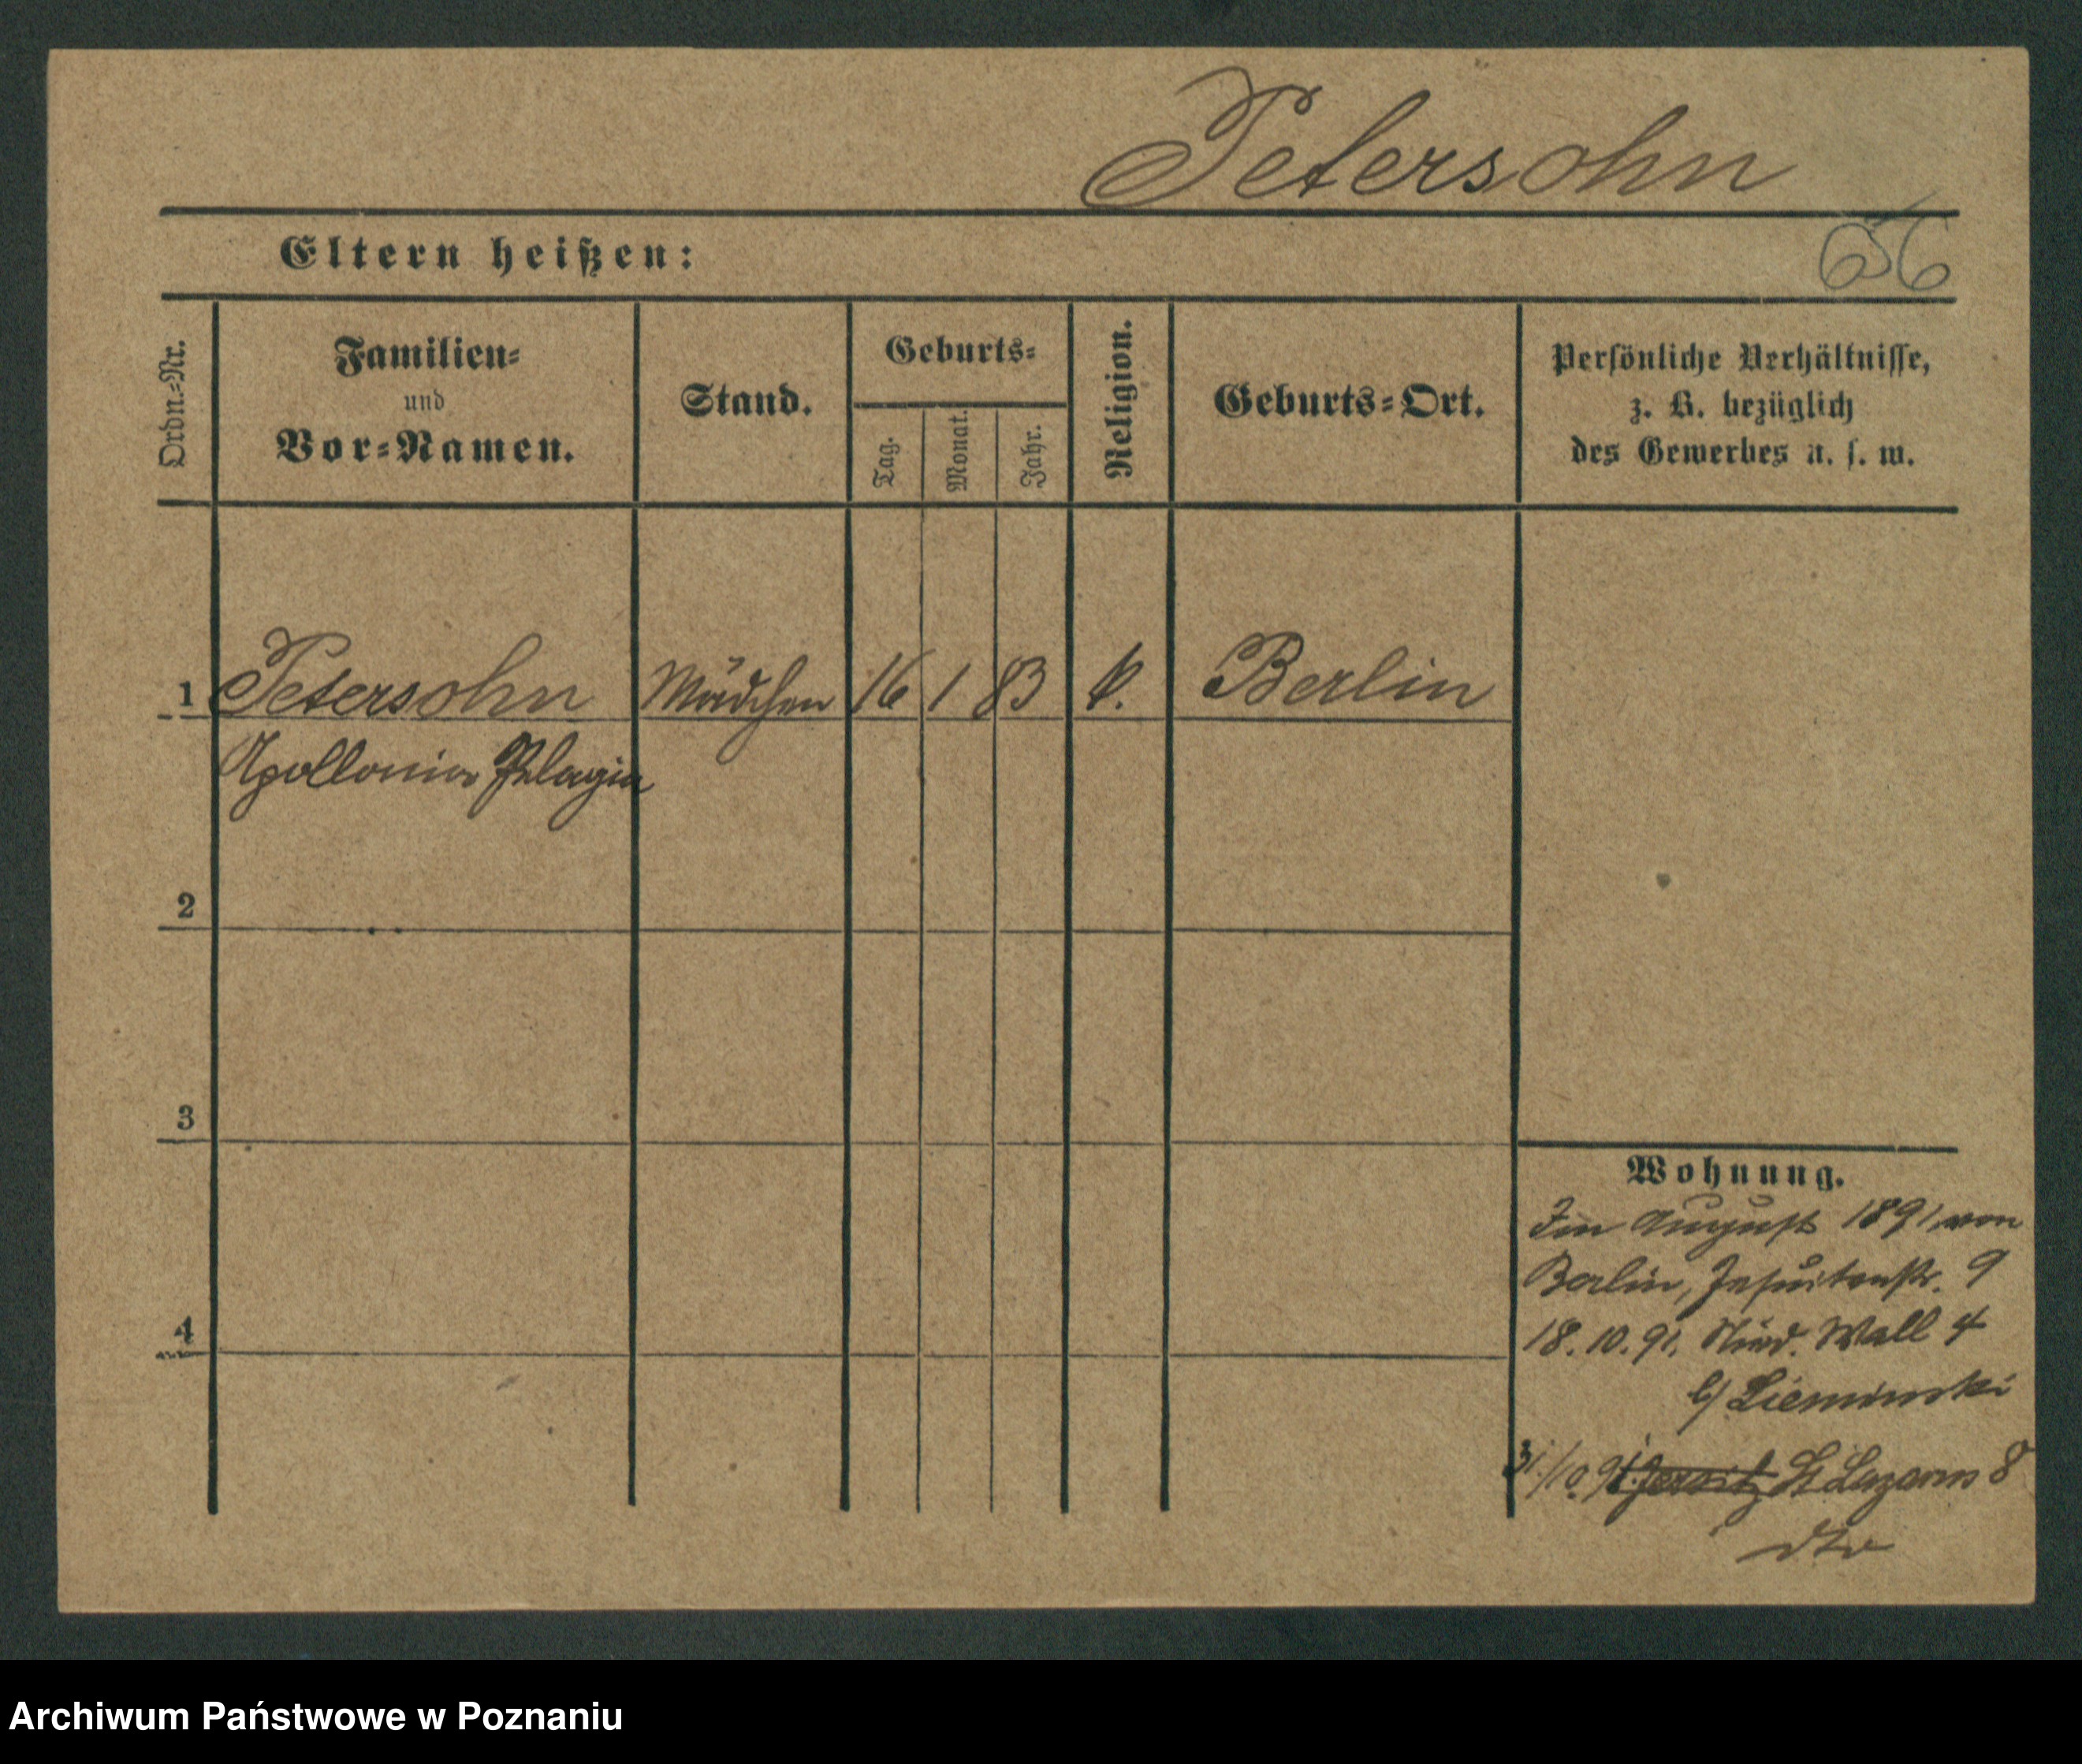 Petersohn
656
Eltern heißen:
Ordn.=Nr.
Familien=
und
Vor=Namen.
Stand.
Geburts=
Tag.
Monat.
Jahr.
Religion.
Geburts=Ort.
Persönliche Verhältnisse,
z. B. bezüglich
des Gewerbes u. s. w.
1 Petersohn Mädchen 16 1 83 k. Berlin
Apollonia Pelagia
2
3
4
Wohnung.
Im August 1891 von
Berlin, Jesuitenstr. 9
18.10.91. Wall 4
b/ Lieminski
31/10.91. Jersitz St Lazarus 8
dto
Archiwum Państwowe w Poznaniu